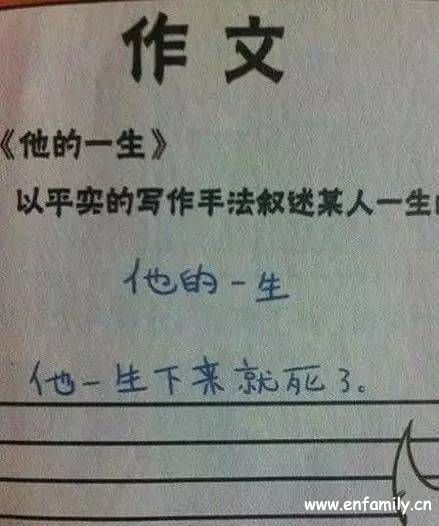 作文
《他的一生》
以平实的写作手法叙述某人一生的
他的一生
他一生下来就死了。
www.enfamily.cn